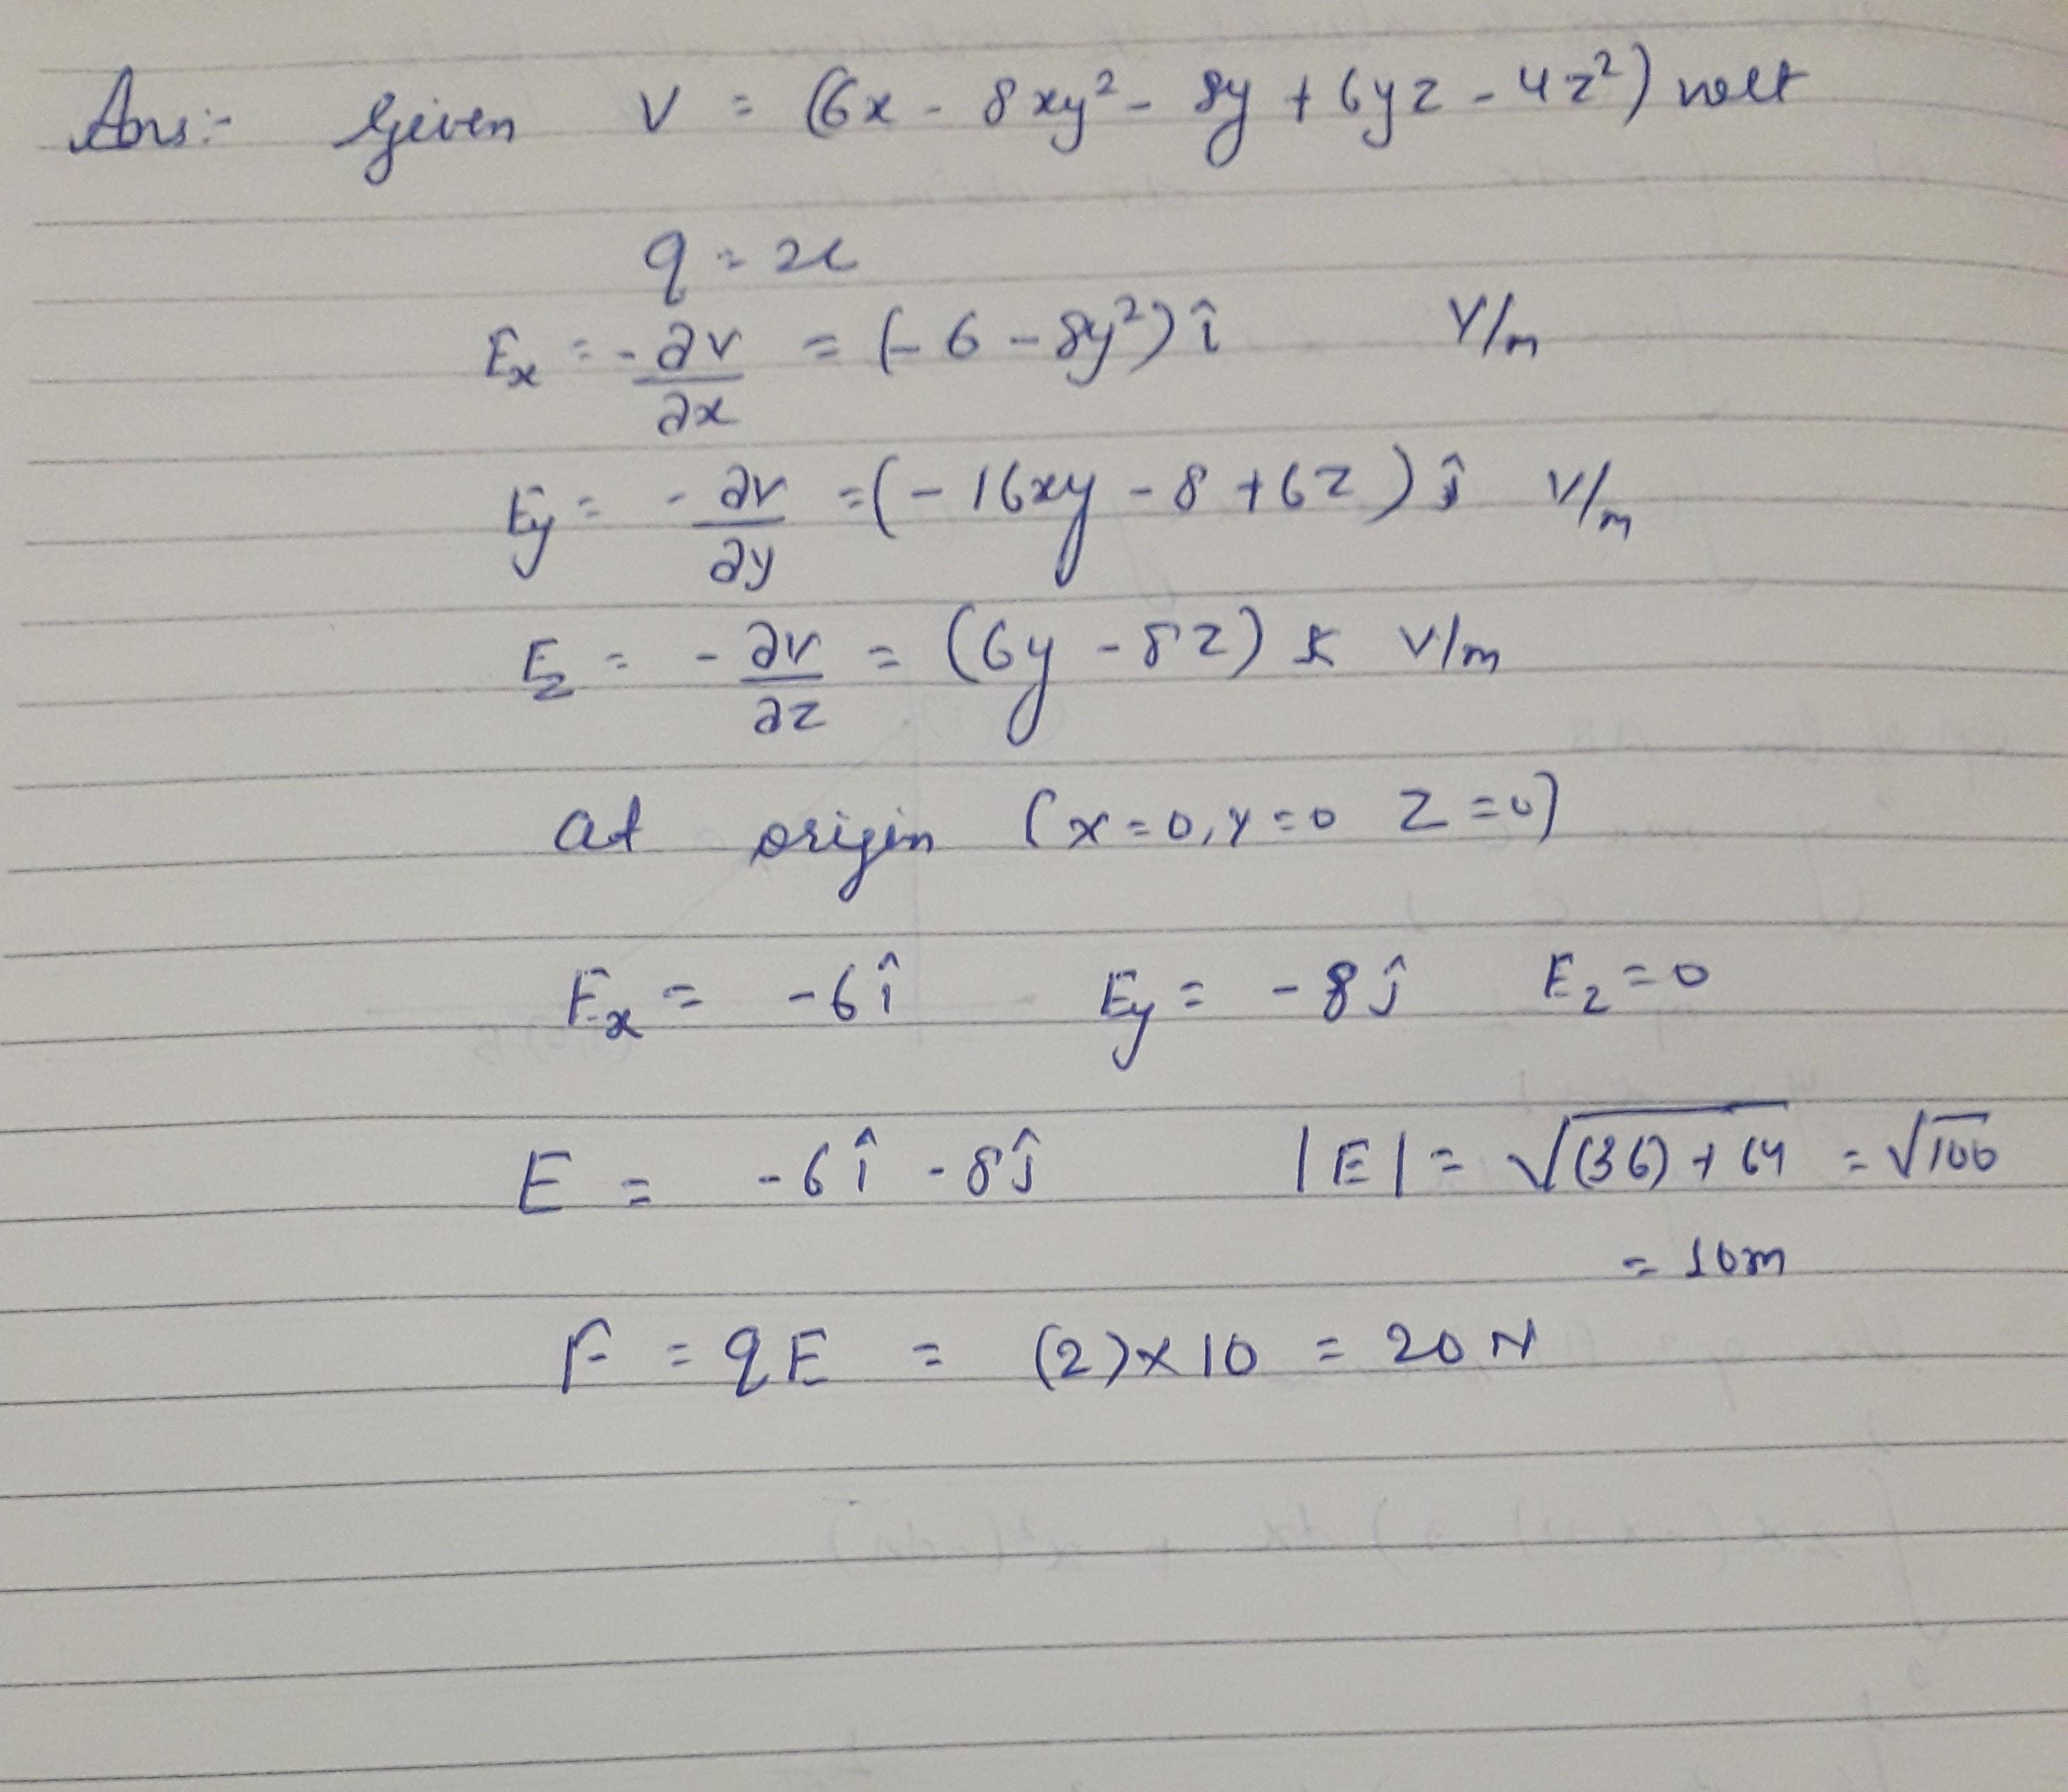 Ans:- Given V = (6x - 8xy² - 8y + 6yz - 4z²) volt
q = 2c
Ex = -∂v/∂x = (-6 - 8y²) î V/m
Ey = -∂v/∂y = (-16xy - 8 + 6z) ĵ V/m
Ez = -∂v/∂z = (6y - 8z) k V/m
at origin (x=0, y=0 z=0)
Ex = -6î Ey = -8ĵ Ez = 0
E = -6î - 8ĵ |E| = √(36) + 64 = √100
= 10m
F = qE = (2)×10 = 20 N